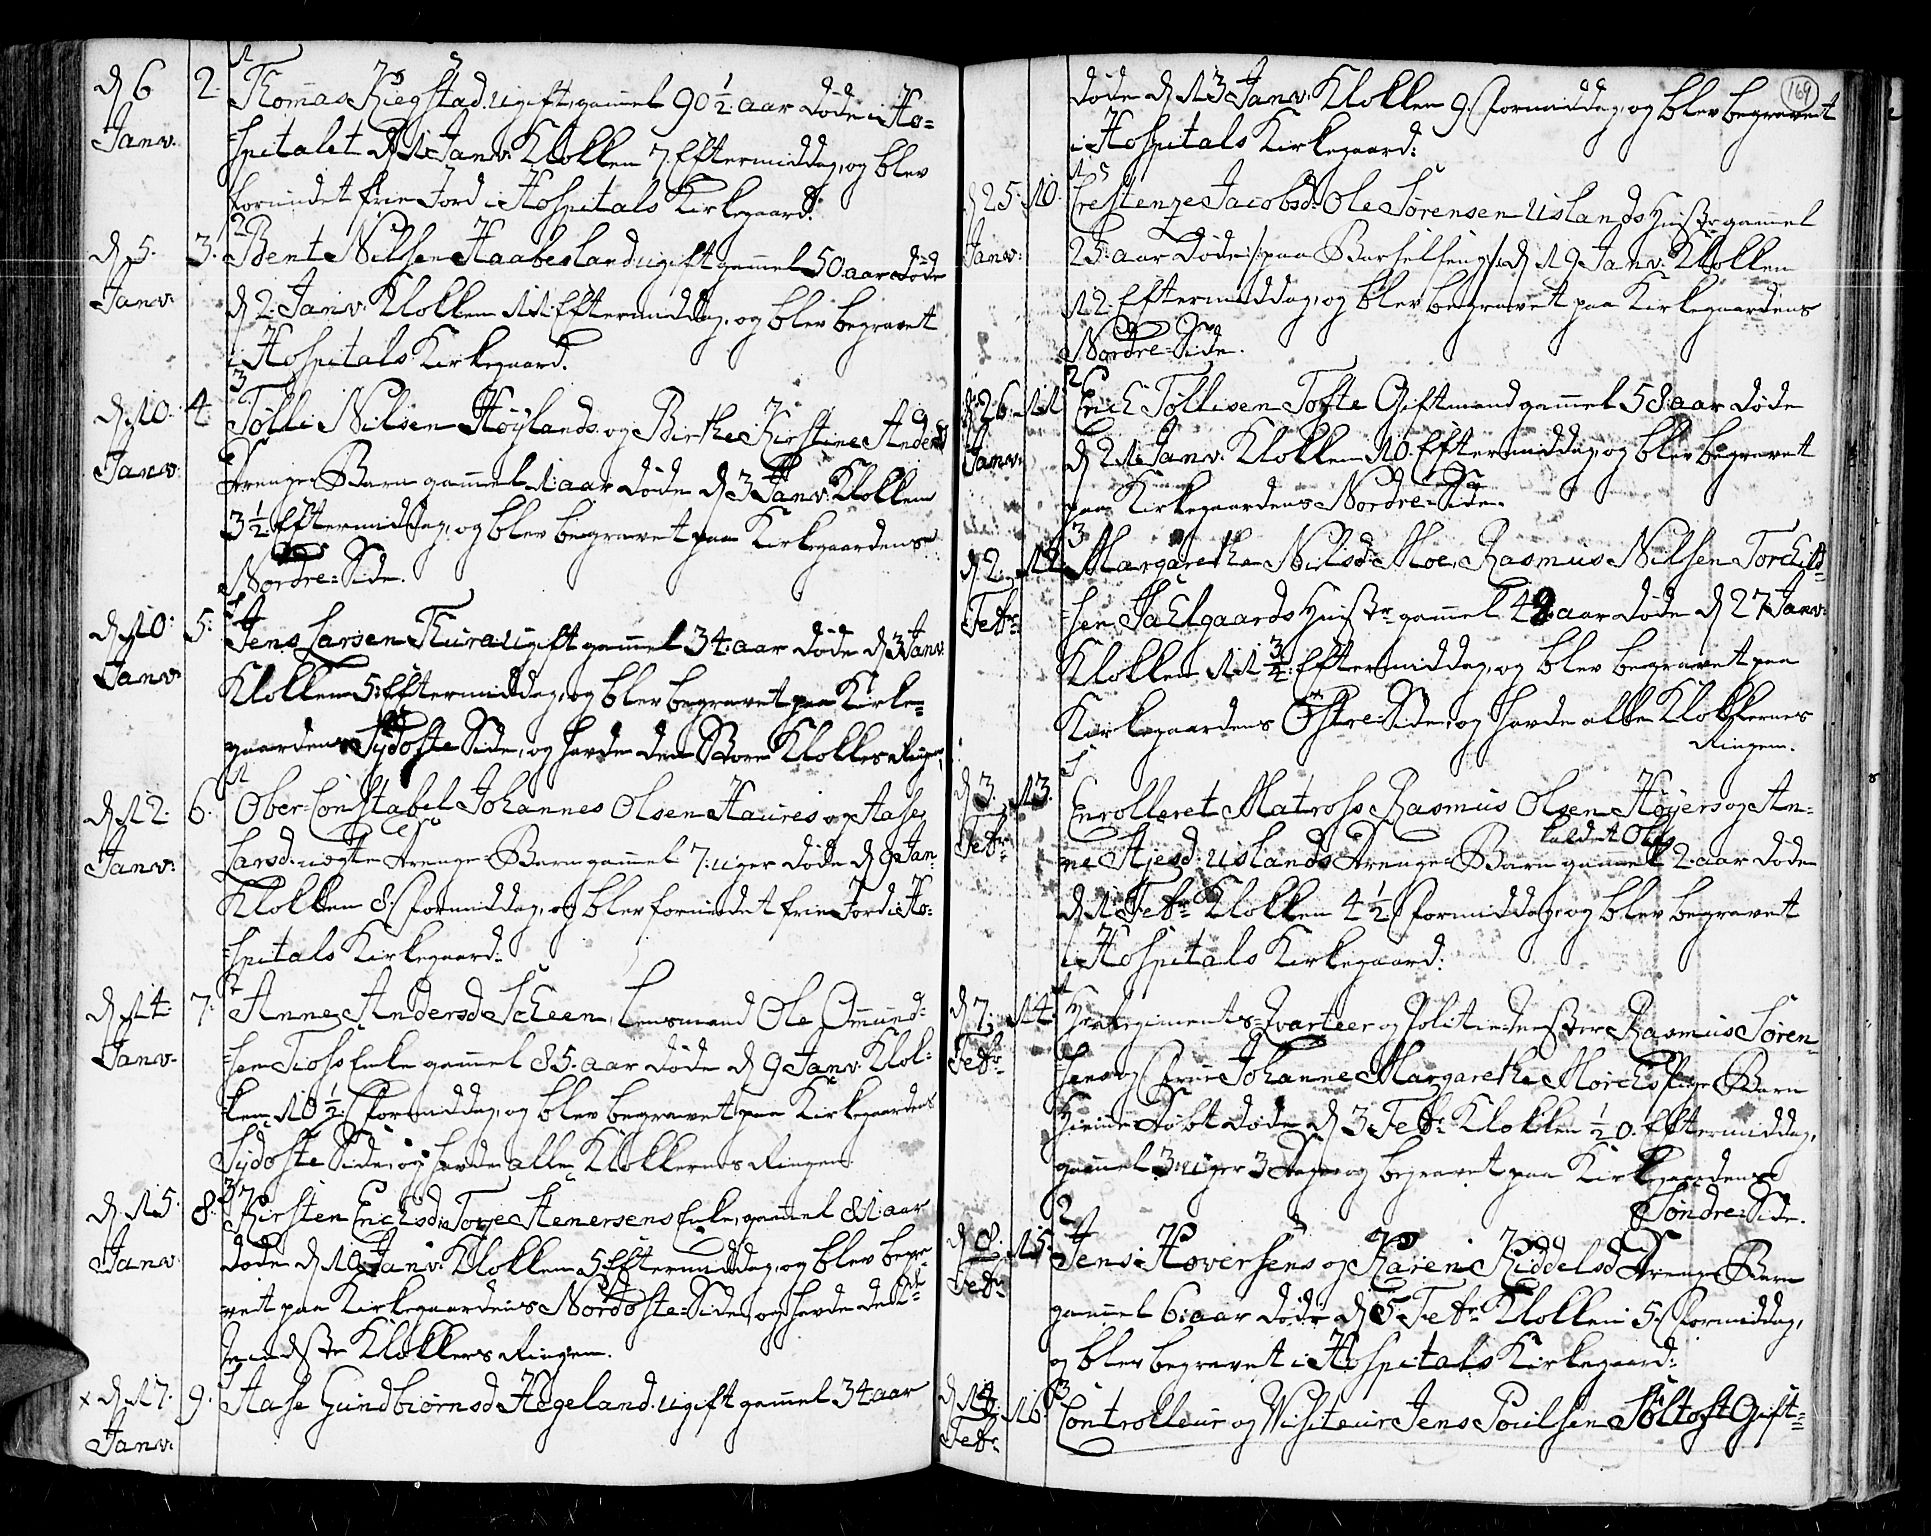 d 6 Janv. 2. Thomas Kiegstad ugift, gamel 90 1/2 aar døde i Ho=
spitalet d 1 Janv. Klokken 7 Eftermiddag, og blev
forundet frie Jord i Hospitals Kirkegaard.
d 5. Janv. 3. Bent Nilsen Haabesland ugift gamel 50 aar døde
d 2. Janv. Klokken 11 Eftermiddag, og blev begravet
i Hospitals Kirkegaard.
d 10. Janv. 4. Tølli Nilsen Høylands og Birthe Kirstine Andersd
Drenge Barn gamel 1 aar døde d 3 Janv. Klokken
3 1/2 Eftermiddag, og blev begravet paa Kirkegaardens
Nordre=Side.
d 10. Janv. 5. Jens Larsen Thura ugift gamel 34. aar døde d 3 Janv.
Klokken 5. Eftermiddag, og blev begravet paa Kirke=
gaardens Sydoste Side, og havde den Store Klokkes Ringen,
d 12. Janv. 6. Ober-Constabel Johannes Olsen Haures og Aase
Larsd: uægte Drenge Barn gamel 7. uger døde d 9 Jan
Klokken 8. Formiddag, og blev forundet frie Jord i Ho=
spitals Kirkegaard.
d 14. Janv. 7. Anne Andersd Scheen, Lensmand Ole Omund=
sen Enke gamel 85. aar døde d 9 Janv. Klok=
ken 10 1/2 Formiddag, og blev begravet paa Kirkegaardens
Sydoste Side, og havde alle Klokkernes Ringen.
d 15. Janv 8. Kirsten Erichsd: Tore Stenersens Enke, gamel 81 aar
døde d 10 Janv. Klokken 5 Eftermiddag, og blev begra=
vet paa Kirkegaardens Nordoste=Side, og havde det
mindste Klokkers Ringen.
x d 17. Janv. 9. Aase Gundbiørnsd Høgeland. ugift gamel 34 aar
169
døde d 13 Janv. Klokken 9. Formiddag, og blev begravet
i Hospitals Kirkegaard.
d 25. Janv. 10. Crestenze Jacobsd: Ole Sørensen Uslands Hustr gamel
25. aar døde /: paa Barselseng :/ d 19 Janv. Klokken
12. Eftermiddag, og blev begravet paa Kirkegaardens
Nordre=Side.
d 26. Janv. 11 Erich Tøllisen Tofte Giftmand gamel 58 aar døde
d 21. Janv. Klokken 10. Eftermiddag, og blev begravet
paa Kirkegaardens Nordre=Side.
d 2. Febr: 12 Margarethe Nilsd: Moe, Rasmus Nilsen Torchild=
sen Hustr gamel 42 aar døde d 27 Janv.
Klokken 11 3/4 Eftermiddag, og blev begravet paa
Kirkegaardens Østre=Side, og havde alle Klokkernes
Ringen.
d 3. Febr: 13. Enrolleret Matross Rasmus Olsen Høyers og An=
kaldet Ole
ne Uslands Drenge Barn gamel 2. aar døde
d 1 Febr: Klokken 4 1/2 Formiddag, og blev begravet
i Hospitals Kirkegaard.
d 7. Febr: 14. Hr. Regiments=Qvarteer og Politie=Mester Rasmus Søren=
sens og Frue Johanne Margarethe Morchs Pige Barn
Hiemme Døbt døde d 3 Febr: Klokken 1/2 0. Eftermiddag,
gamel 3. uger 3 Dage og begravet paa Kirkegaardens
Søndre=Side.
d 8. Febr: 15. Jens Hoversens og Karen Kiddelsd Drenge Barn
gamel 6. aar døde d 5 Febr: Klokken 5. Formiddag,
og blev begravet i Hospitals Kirkegaard.
d Febr: 16. Controlleur og Visiteur Jens Poulsen Søltoft Gift=